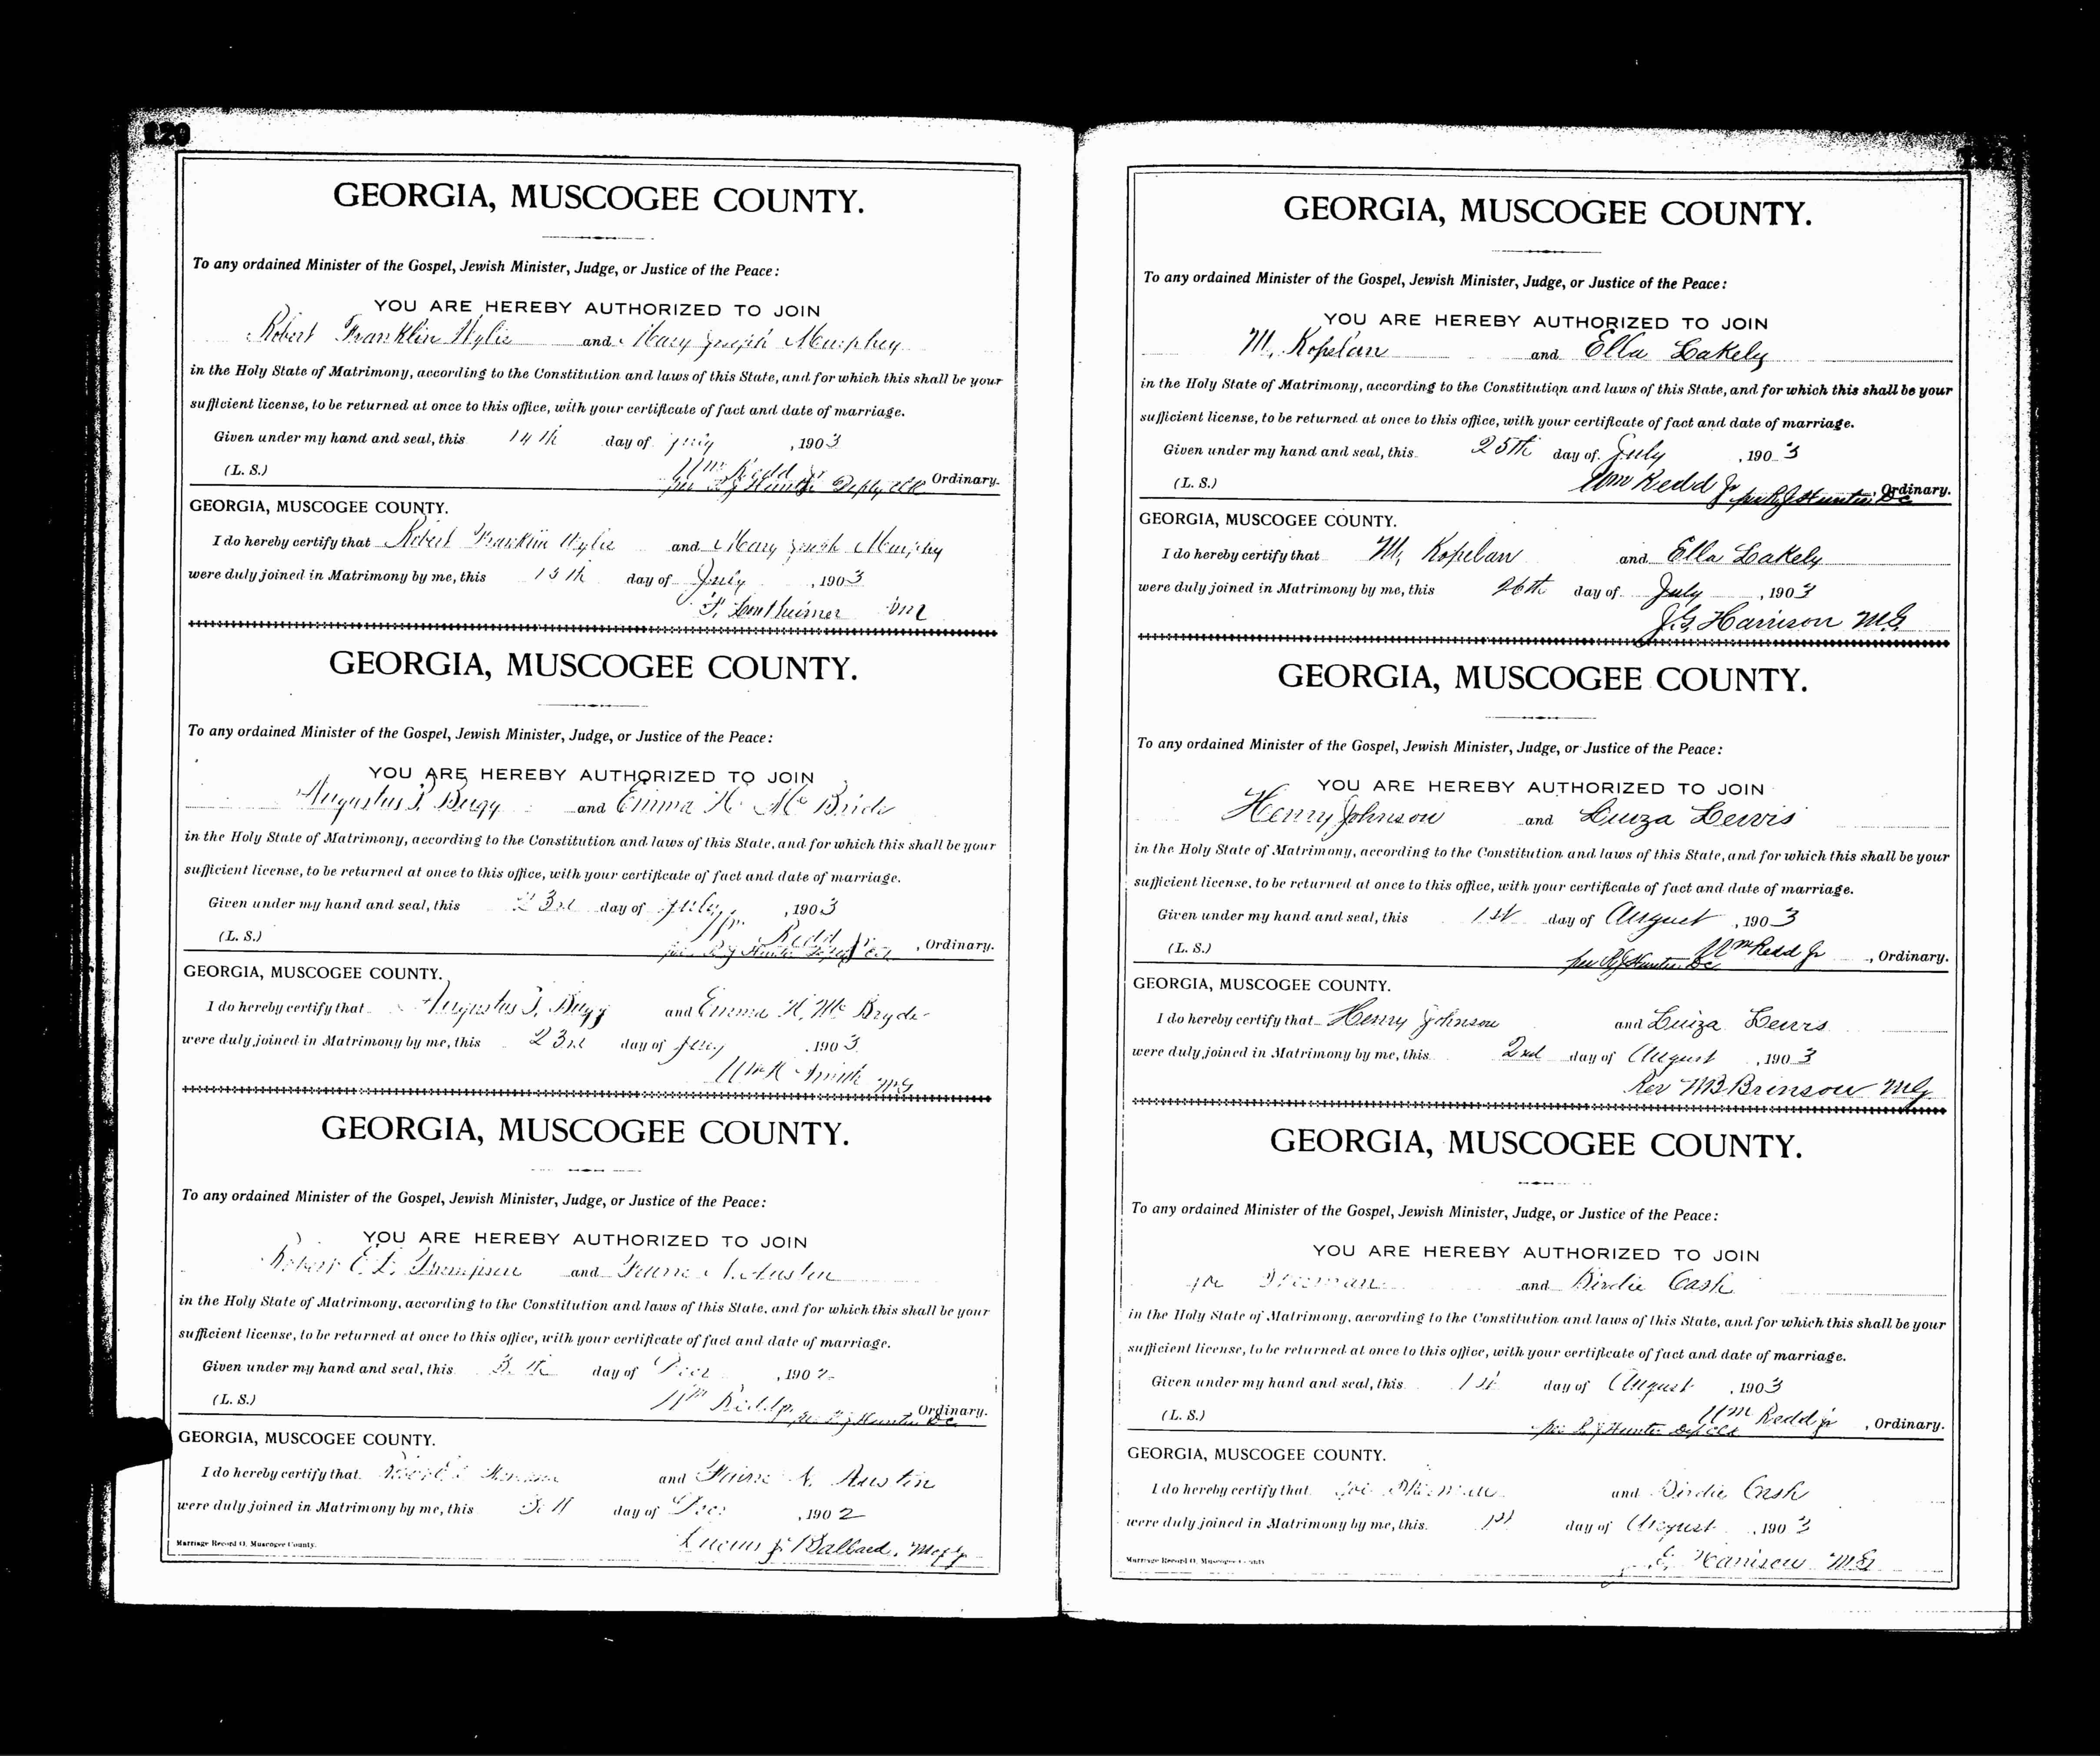 GEORGIA, MUSCOGEE COUNTY.
To any ordained Minister of the Gospel, Jewish Minister, Judge, or Justice of the Peace:
YOU ARE HEREBY AUTHORIZED TO JOIN
Robert Franklin Wylie and Mary Joseph Murphey
in the Holy State of Matrimony, according to the Constitution and laws of this State, and for which this shall be your
sufficient license, to be returned at once to this office, with your certificate of fact and date of marriage.
Given under my hand and seal, this 14th day of July, 1903
Wm Redd Jr
(L. S.) per R J Hunter Ordinary.
GEORGIA, MUSCOGEE COUNTY.
I do hereby certify that Robert Franklin Wylie and Mary Joseph Murphy
were duly joined in Matrimony by me, this 15th day of July, 1903
GEORGIA, MUSCOGEE COUNTY.
To any ordained Minister of the Gospel, Jewish Minister, Judge, or Justice of the Peace:
YOU ARE HEREBY AUTHORIZED TO JOIN
Augustus Bugg and Emma H. Mc Bride
in the Holy State of Matrimony, according to the Constitution and laws of this State, and for which this shall be your
sufficient license, to be returned at once to this office, with your certificate of fact and date of marriage.
Given under my hand and seal, this 23rd day of July, 1903
(L. S.) Redd Jr, Ordinary.
GEORGIA, MUSCOGEE COUNTY.
I do hereby certify that Augustus Bugg and Emma H. Mc Bryde
were duly joined in Matrimony by me, this 23rd day of July, 1903
Smith MG
GEORGIA, MUSCOGEE COUNTY.
To any ordained Minister of the Gospel, Jewish Minister, Judge, or Justice of the Peace:
YOU ARE HEREBY AUTHORIZED TO JOIN
Robert E. L. Thompson and Austin
in the Holy State of Matrimony, according to the Constitution and laws of this State, and for which this shall be your
sufficient license, to be returned at once to this office, with your certificate of fact and date of marriage.
Given under my hand and seal, this day of Dec, 1902
(L. S.) Wm Redd Jr per R J Hunter DC Ordinary.
GEORGIA, MUSCOGEE COUNTY.
I do hereby certify that and Austin
were duly joined in Matrimony by me, this day of Dec, 1902
Ballard.
Marriage Record O, Muscogee County.
GEORGIA, MUSCOGEE COUNTY.
To any ordained Minister of the Gospel, Jewish Minister, Judge, or Justice of the Peace:
YOU ARE HEREBY AUTHORIZED TO JOIN
M. Kopelan and Ella Lakely
in the Holy State of Matrimony, according to the Constitution and laws of this State, and for which this shall be your
sufficient license, to be returned at once to this office, with your certificate of fact and date of marriage.
Given under my hand and seal, this 25th day of July, 1903
(L. S.) Wm Redd Jr per R J Hunter DC, Ordinary.
GEORGIA, MUSCOGEE COUNTY.
I do hereby certify that M. Kopelan and Ella Lakely
were duly joined in Matrimony by me, this 26th day of July, 1903
J. G. Harrison M.G.
GEORGIA, MUSCOGEE COUNTY.
To any ordained Minister of the Gospel, Jewish Minister, Judge, or Justice of the Peace:
YOU ARE HEREBY AUTHORIZED TO JOIN
Henry Johnson and Luiza Lewis
in the Holy State of Matrimony, according to the Constitution and laws of this State, and for which this shall be your
sufficient license, to be returned at once to this office, with your certificate of fact and date of marriage.
Given under my hand and seal, this 1st day of August, 1903
(L. S.) per R J Hunter DC Wm Redd Jr, Ordinary.
GEORGIA, MUSCOGEE COUNTY.
I do hereby certify that Henry Johnson and Luiza Lewis
were duly joined in Matrimony by me, this 2nd day of August, 1903
Rev M B Brinson MG
GEORGIA, MUSCOGEE COUNTY.
To any ordained Minister of the Gospel, Jewish Minister, Judge, or Justice of the Peace:
YOU ARE HEREBY AUTHORIZED TO JOIN
Joe and Birdie Cash
in the Holy State of Matrimony, according to the Constitution and laws of this State, and for which this shall be your
sufficient license, to be returned at once to this office, with your certificate of fact and date of marriage.
Given under my hand and seal, this 1st day of August, 1903
(L. S.) per R J Hunter Wm Redd Jr, Ordinary.
GEORGIA, MUSCOGEE COUNTY.
I do hereby certify that Joe and Birdie Cash
were duly joined in Matrimony by me, this 1st day of August, 1903
Harrison MG
Marriage Record O, Muscogee County.